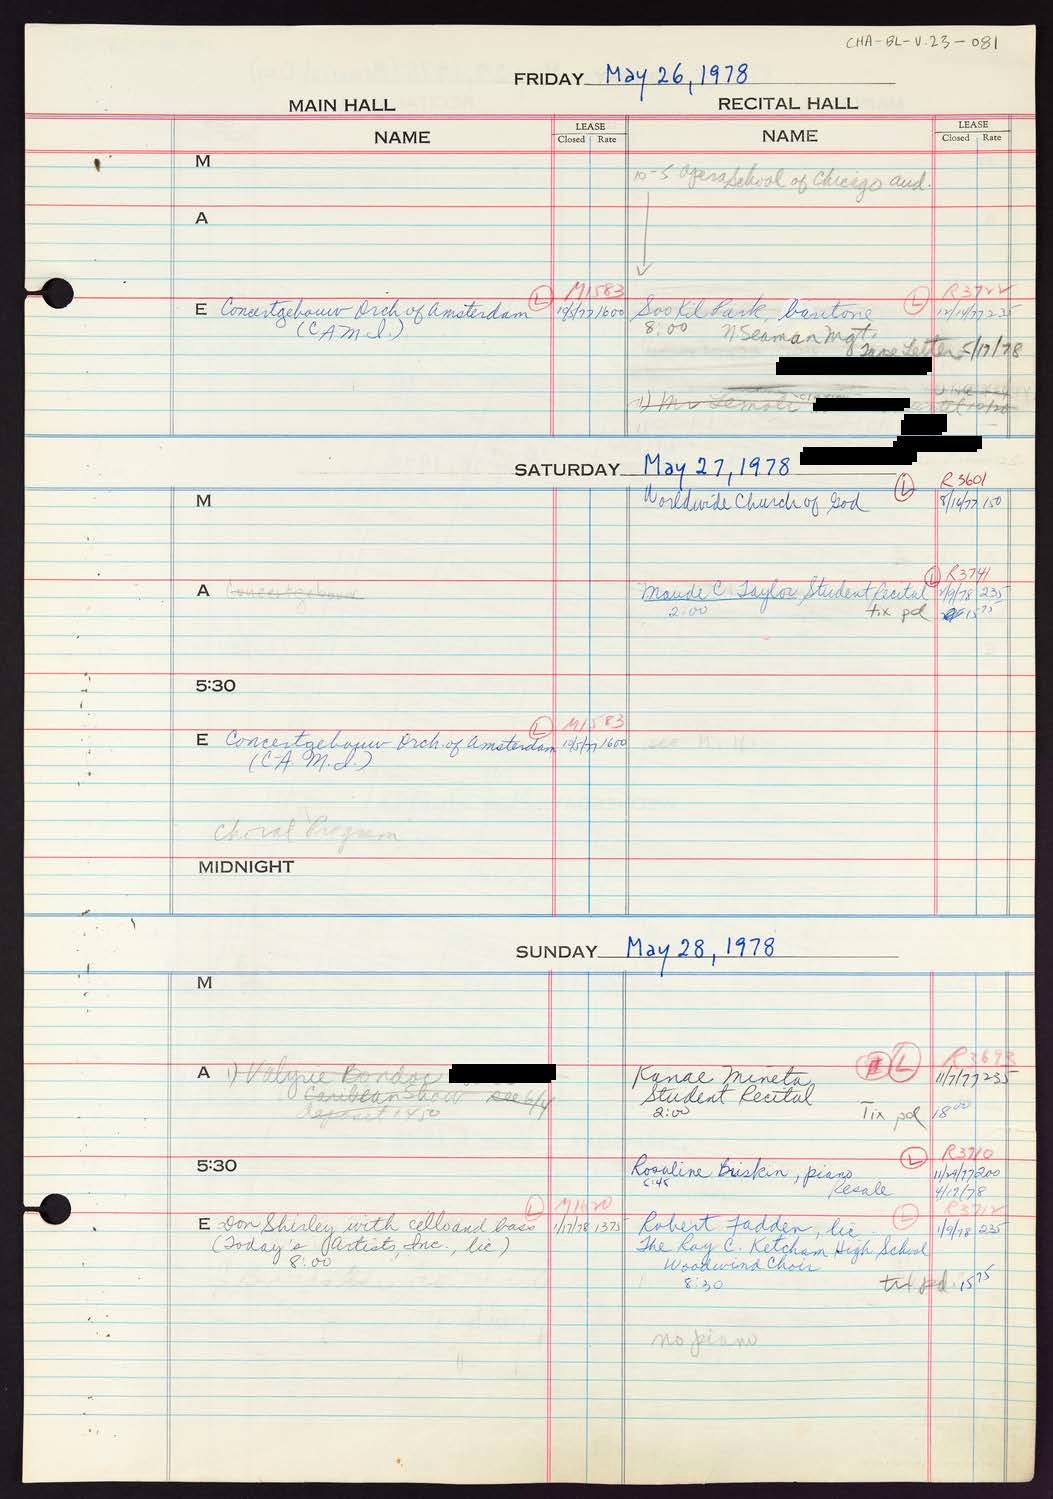 CHA-BL-V.23-081
FRIDAY May 26, 1978
MAIN HALL
RECITAL HALL
NAME
LEASE
Closed Rate
NAME
LEASE
Closed Rate
M
10-5 Opera School of Chicago aud.
A
M1583
R3722
E Concertgebouw Orch of Amsterdam
10/5/77 1600
Soo Kil Park, baritone
12/14/77 235
(C A M.I.)
8:00
N Seaman Mgt.
Letter 5/17/78
1) Mr
SATURDAY May 27, 1978
R3601
M
Worldwide Church of God
8/14/77 150
R3741
A Concertgebouw
Maude C. Taylor Student Recital
2/9/78 235
2:00
tix pd
15 75
5:30
M1583
E Concertgebouw Orch of Amsterdam
10/5/77 1600
see M. H.
(C A. M.I.)
Choral Program
MIDNIGHT
SUNDAY May 28, 1978
M
L
R3693
A 1) Valyrie Bondoc
Kanae Mineta
11/7/77 235
Caribean Show see 6/4
Student Recital
deposit 1450
2:00
Tix pd 18 00
L
R3710
5:30
Rosaline Briskin, piano
11/29/77 200
5:45
Resale
4/17/78
L
M1620
L
R3712
E Don Shirley with cello and bass
1/17/78 1375
Robert Fadden, lic
1/9/78 235
(Today's Artists, Inc., lic)
The Roy C. Ketcham High School
8:00
Woodwind Choir
8:30
pd 15 75
no piano